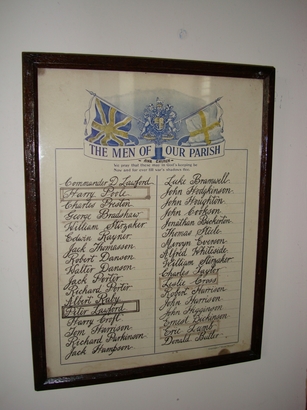 THE MEN OF OUR PARISH
Commander D. Lawford
Harry Poole
Charles Preston
George Bradshaw
William Stirzaker
Edwin Rayner
Jack Thomasson
Robert Danson
Walter Danson
Jack Porter
Richard Porter
Albert Raby
Peter Lawford
Harry Croft
Tom Harrison
Richard Parkinson
Jack Hampson
Luke Bramwell
John Hodgkinson
John Houghton
John
Jonathan Bickerton
Thomas Steele
Mervyn Evenson
Alfred Whiteside
William Stirzaker
Charles Taylor
Leslie Cross
Robert Harrison
John Harrison
John
Ernest Dickinson
Eric Lamb
Donald Butler